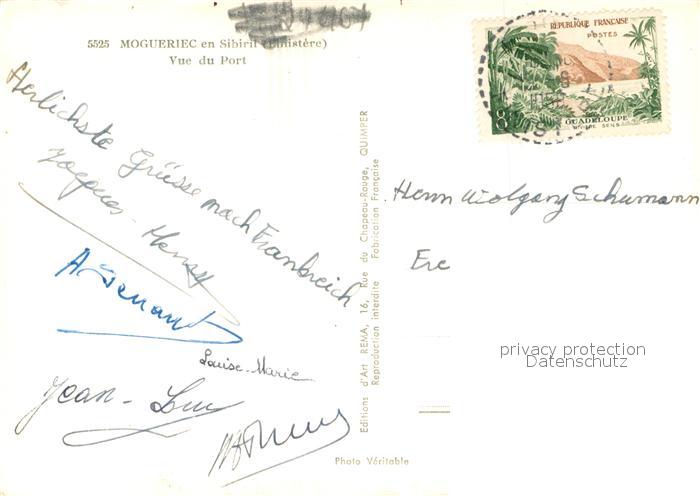 5525 MOGUERIEC en Sibiril (Finistère)
Vue du Port
REPUBLIQUE FRANÇAISE
POSTES
8F
GUADELOUPE
RIVIÈRE SENS
Herlichste Grüsse nach Frankreich
Jacques-Henry
Louise-Marie
Jean-Luc
Editions d'Art REMA, 16, Rue du Chapeau-Rouge, QUIMPER
Reproduction interdite Fabrication Française
Photo Véritable
Herrn Wolfgang Schumann
Ere
privacy protection
Datenschutz